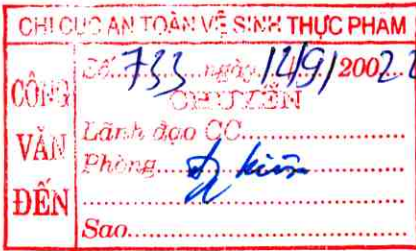 CHI CỤC AN TOÀN VỆ SINH THỰC PHẨM
CÔNG VĂN ĐẾN
Số 733 ngày 12/9/20022
CHUYỂN
Lãnh đạo CC
Phòng
Sao